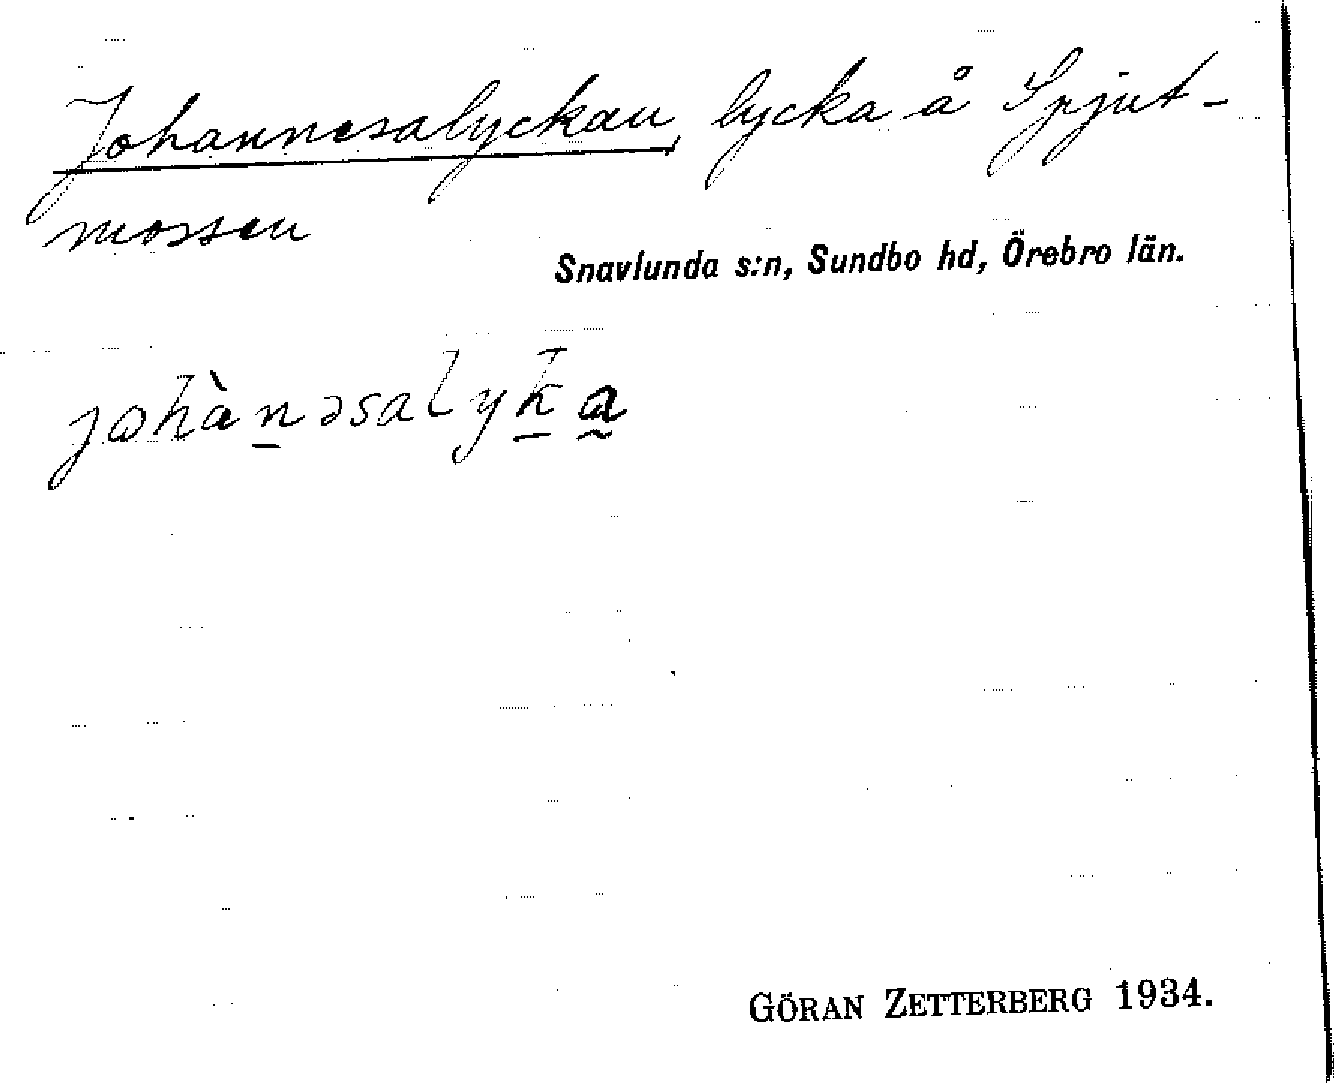 Johannesalyckan, lycka å Spjut-
mossen
Snavlunda s:n, Sundbo hd, Örebro län.
johànəsalyka
GÖRAN ZETTERBERG 1934.